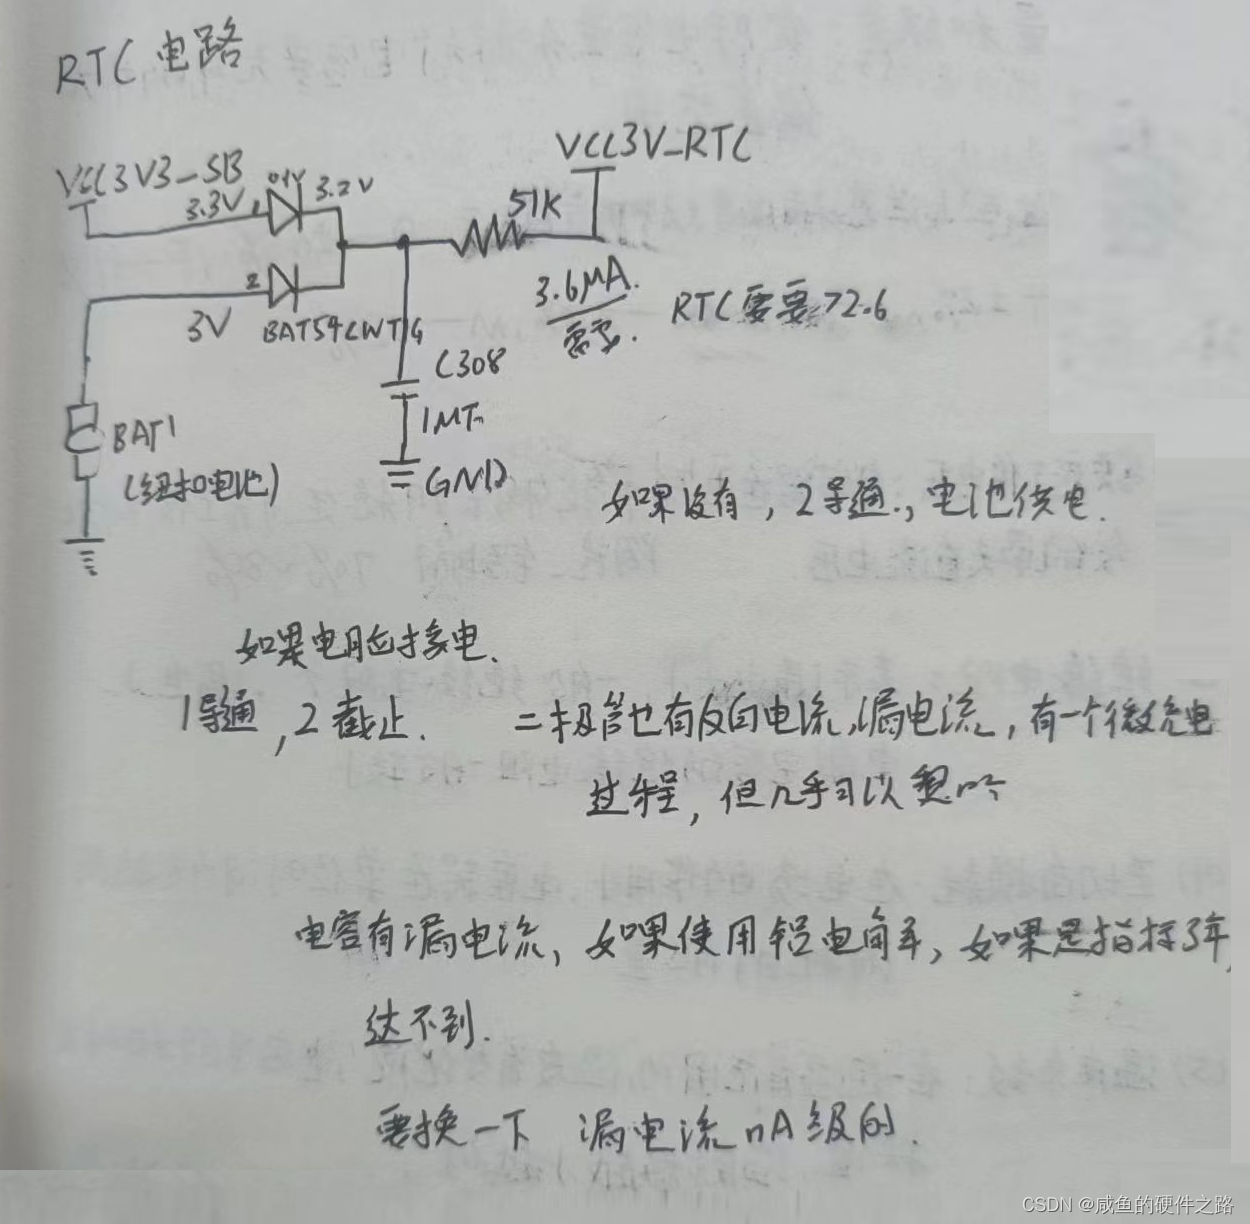 RTC 电路
VCC3V3_SB
0.1V
3.3V
1
3.2V
VCC3V_RTC
51K
2
3V
BAT54CWT1G
3.6μA.
需要.
RTC需要>2.6
C308
1MF
GND
BAT1
(纽扣电池)
如果没有，2导通.，电池供电.
如果电脑接电.
1导通，2截止.
二极管也有反向电流,漏电流，有一个微充电
过程，但几乎可以忽略
电容有漏电流，如果使用铝电解，如果是指标3年,
达不到.
要换一下 漏电流nA级的.
CSDN @咸鱼的硬件之路